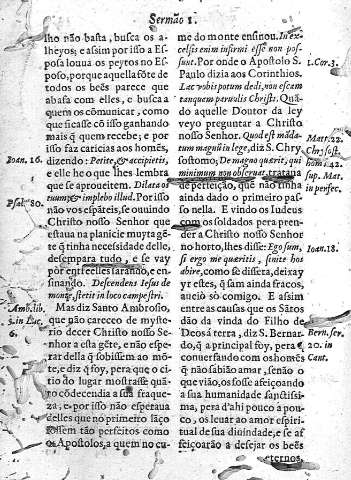 Sermão 1.
lho não basta, busca os a-
lheyos; e assim por isso a Es-
posa louua os peytos no Es-
poso, porque aquella fôte de
todos os beẽs parece que
abafa com elles, e busca a
quem os cõmunicar, como
que ficasse õ isso ganhando
mais q̃ quem recebe; e por
isso faz caricias aos homẽs,
dizendo: Petite, & accipietis,
e elle he o que lhes lembra
que se aproueitem. Dilata os
tuum & implebo illud. Por isso
não vos espãteis, se ouuindo
Christo nosso Senhor que
estaua na planicie muyta gẽ-
te q̃ tinha necessidade delle,
desempara tudo, e se vay
por entre elles sarando, e en-
sinando. Descendens Iesus de
monte, stetit in loco campestri.
Mas diz Santo Ambrosio,
que não careceo de myste-
rio decer Christo nosso Se-
nhor a esta gẽte, e não espe-
rar della q̃ sobissem ao mõ-
te, e diz q̃ foy, pera que o ci-
tio do lugar mostrasse quã-
to cõdecendia a sua fraque-
za; e por isso não esperaua
delles que no primeiro laço
fossem tão perfeitos como
os Apostolos, a quem no cu-
Ioan. 16.
Psal. 80.
Amb. lib.
5. in Luc.
6.
me do monte ensinou. In ex-
celsis enim infirmi esse non pos-
sunt. Por onde o Apostolo S.
Paulo dizia aos Corinthios.
Lac vobis potum dedi, non escam
tanquam paruulis Christi. Quã-
do aquelle Doutor da ley
veyo preguntar a Christo
nosso Senhor. Quod est mãda-
tum magnũ in lege, diz S. Chry
sostomo; De magno quærit, qui
minimum non obseruat, trataua
de perfeição, que não tinha
ainda dado o primeiro pas-
so nella. E vindo os Iudeus
com os soldados pera pren-
der a Christo nosso Senhor
no horto, lhes disse: Ego sum,
si ergo me quæritis, sinite hos
abire, como se dissera, deixay
yr estes, q̃ sam ainda fracos,
auei-o só comigo. E assim
entre as causas que os Sãtos
dão da vinda do Filho de
Deos á terra, diz S. Bernar-
do, q̃ a principal foy, pera q̃
conuersando com os homẽs
q̃ não sabião amar, senão o
que vião, os fosse afeiçoando
a sua humanidade sanctissi-
ma, pera d'ahi pouco a pou-
co, os leuar ao amor espiri-
tual de sua diuindade, e se af
feiçoarão a desejar os beẽs
eternos,
1. Cor. 3.
Matt. 22.
Chrysost.
hom. 42.
sup. Mat.
in perfec.
Ioan. 18.
Bern. ser.
20. in
Cant.